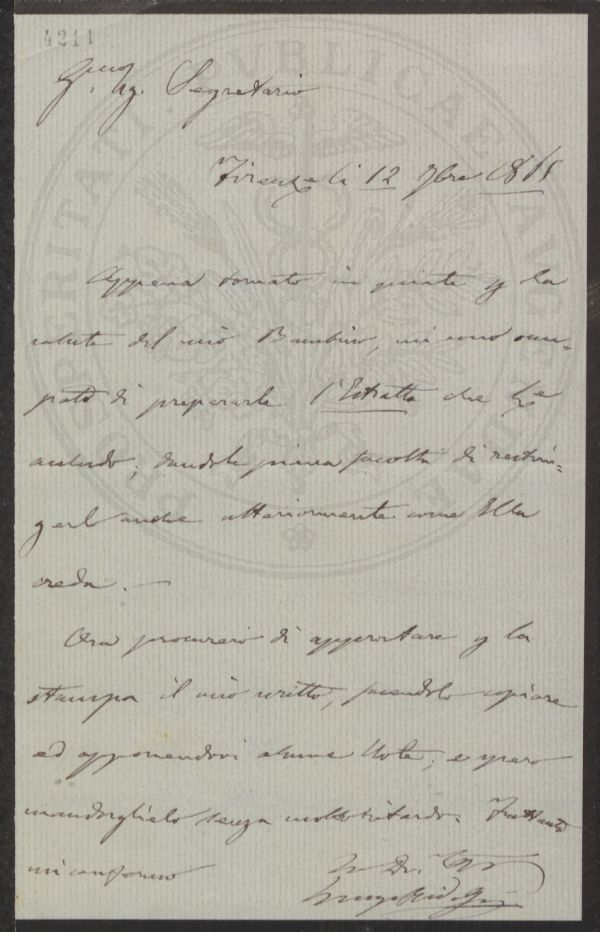 4211
Sig. Segretario
Firenze li 12 9bre 1865
Appena tornato in quiete p la
salute del mio Bambino, mi sono occu=
pato di prepararle l'Estratto che Le
accludo; dandole piena facoltà di restrin=
gerlo anche ulteriormente come Ella
creda. —
Ora procurerò di approntare p la
stampa il mio scritto, facendolo copiare
ed apponendovi alcune Note; e spero
mandarglielo senza molto ritardo. Frattanto
mi confermo
Dev.
PROSPERITATI PVBLICAE AVGENDAE